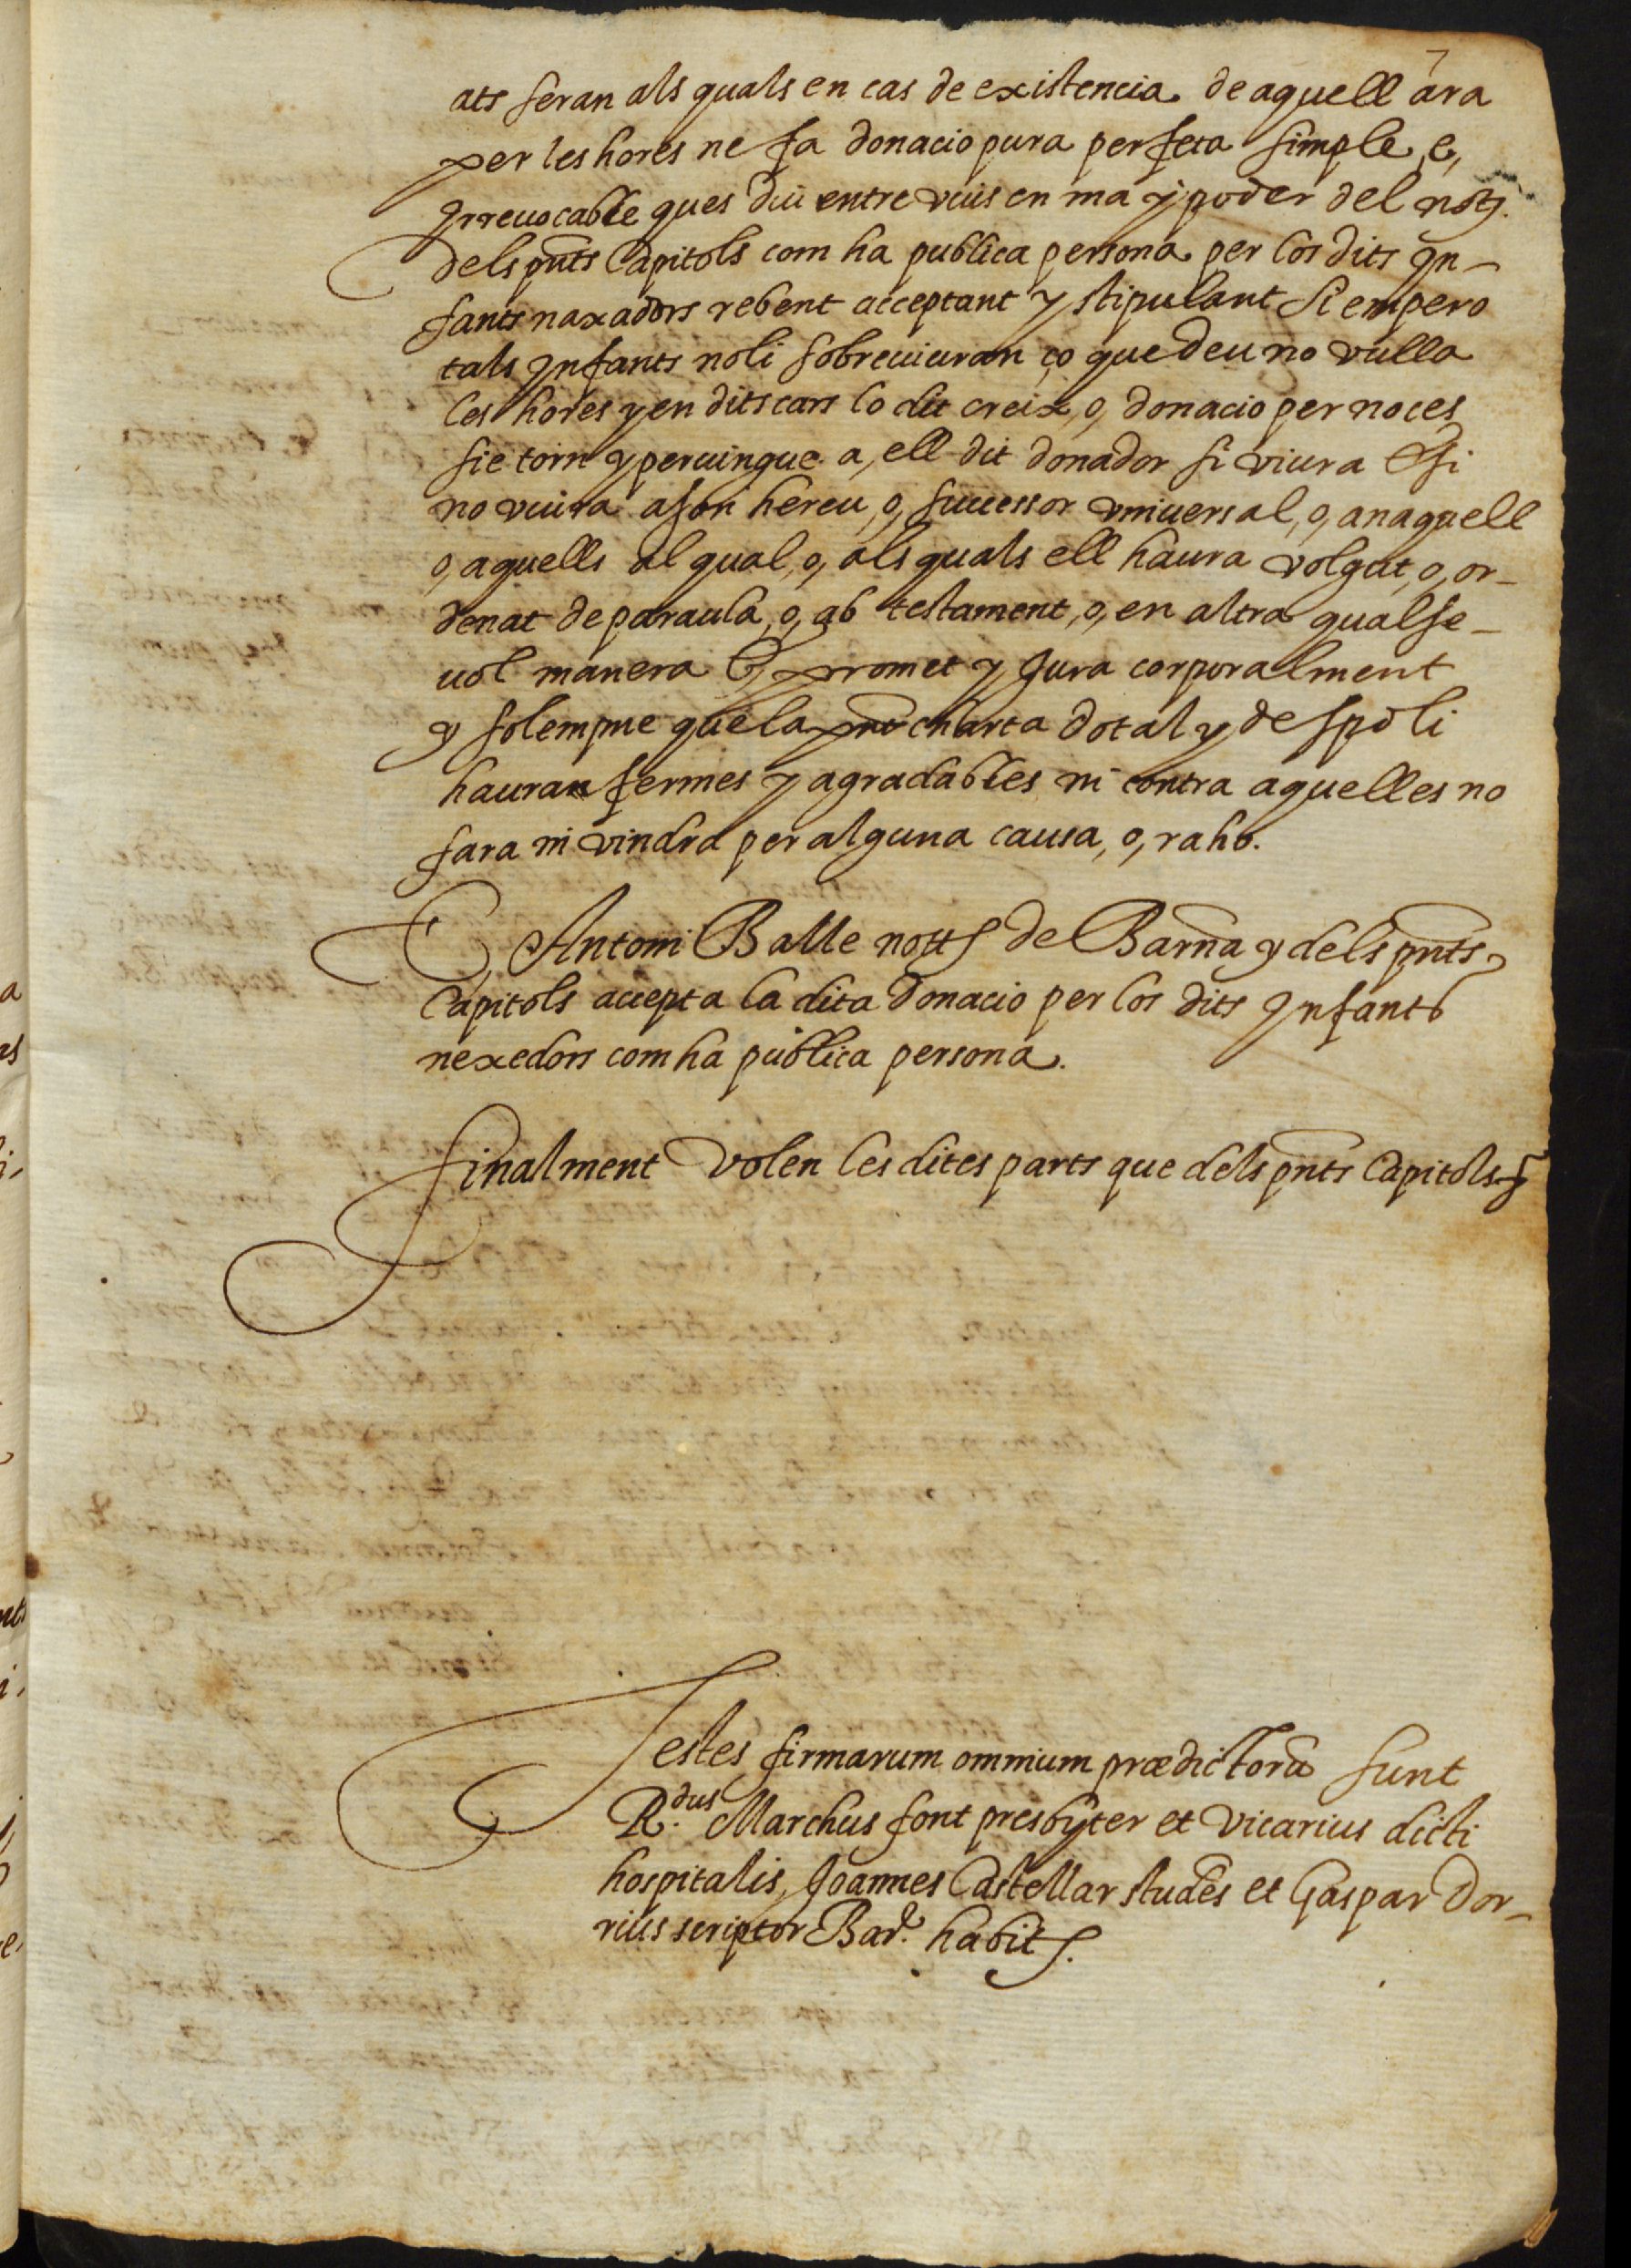 7
ats seran als quals en cas de existencia de aquell ara
per les hores ne fa donacio pura perfeta simple, e,
Irreuocable ques diu entre viuis en ma y poder del notj.
dels pnts Capitols com ha publica persona per los dits In-
fants naxadors rebent acceptant y stipulant Si empero
tals Infants noli sobreuiuran ço que deu no vulla
les hores y en dits cars lo dit creix, o, donacio per noces
sie torn y peruingue a, ell dit donador si viura E si
no viura a son hereu, o, successor vniuersal, o, an aquell
o, aquells al qual, o, als quals ell haura volgut, o, or-
denat de paraula, o, ab testament, o, en altra qualse-
uol manera E, promet y Jura corporalment
y solempne que la pnt charta dotal y de spoli
hauran fermes y agradables ni contra aquelles no
fara ni vindra per alguna causa, o, raho.
E, Antoni Balle nott de Barna y dels pnts
Capitols accepta la dita donacio per los dits Infants
nexedors com ha publica persona.
finalment volen les dites parts que dels pnts Capitols y
Testes firmarum omnium prædictorũ sunt
R.dus Marchus font presbyter et vicarius dicti
hospitalis, Joannes Castellar studẽs et Gaspar Dor-
rius scriptor Bar.e habit.